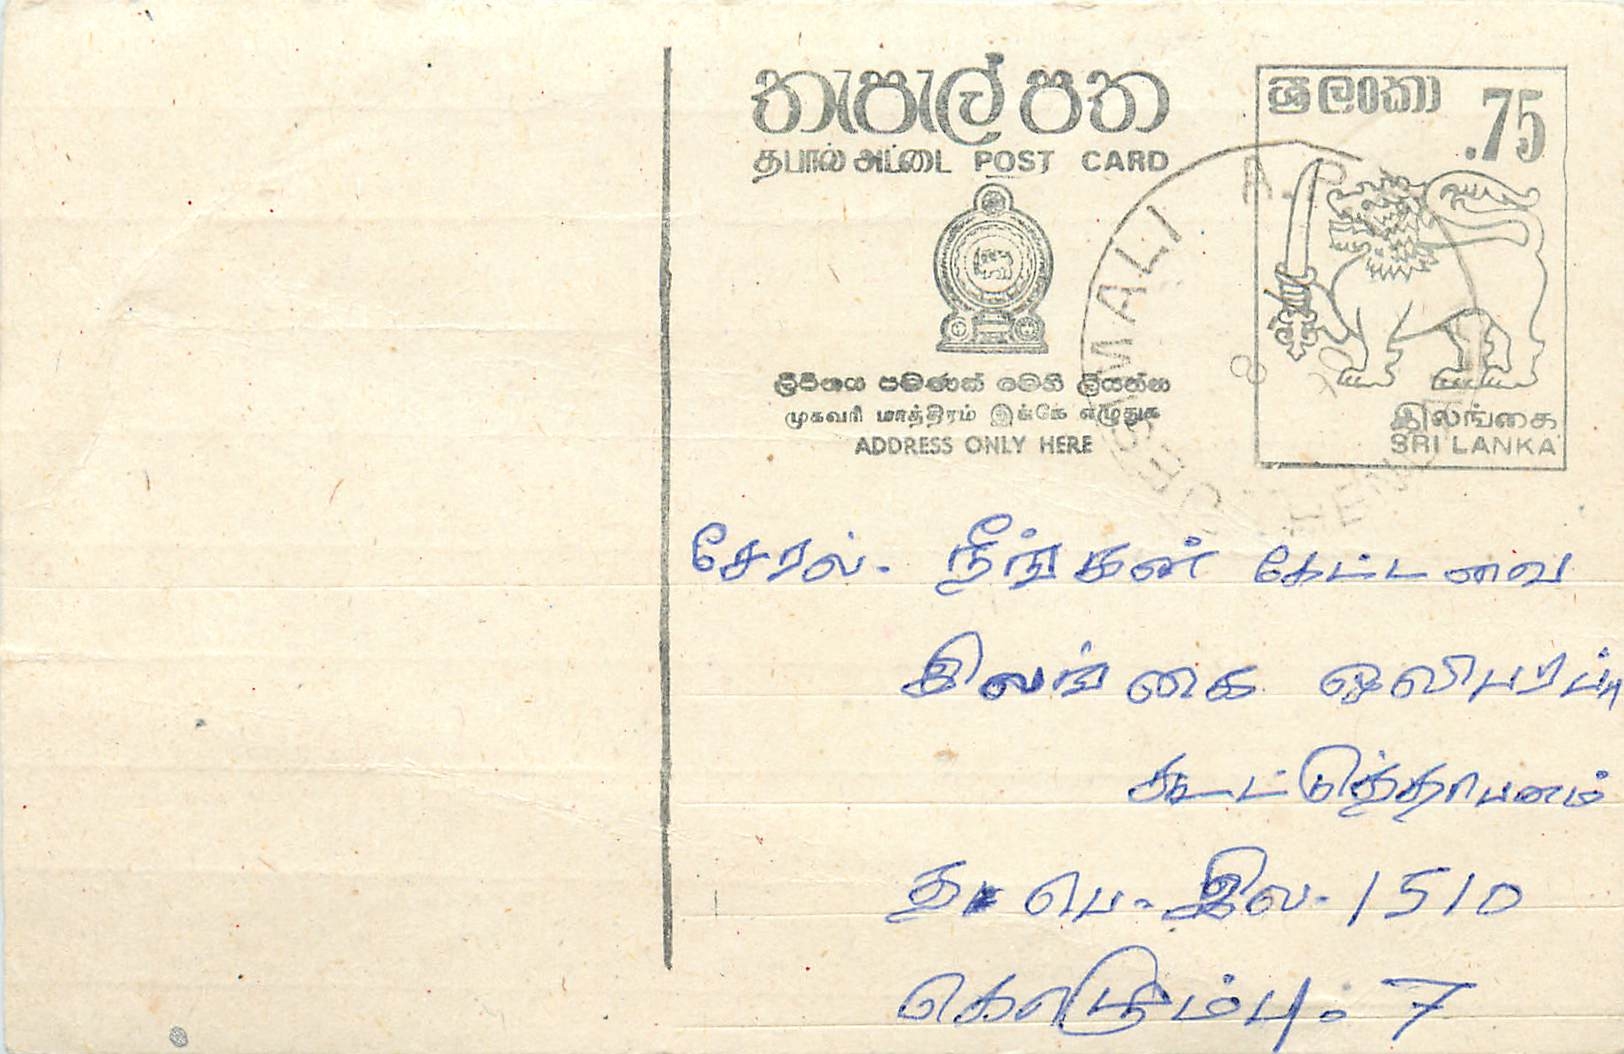 තැපැල් පත
தபால் அட்டை POST CARD
ශ්‍රී ලංකා
.75
ලිපිනය පමණක් මෙහි ලියන්න
முகவரி மாத்திரம் இங்கே எழுதுக
ADDRESS ONLY HERE
இலங்கை
SRI LANKA
MALI A.P
8
சேரல். நீங்கள் கேட்டவை
இலங்கை ஒலிபரப்பு
கூட்டுத்தாபனம்
த. பெ. இல. 1510
கொழும்பு. 7